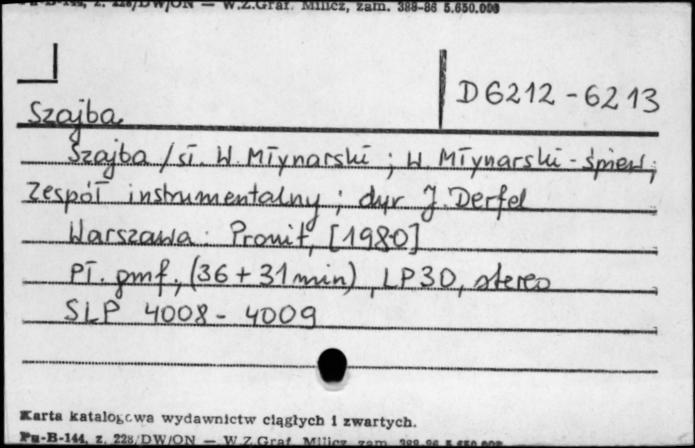 Pu-B-144, z. 228/DW/ON — W.Z.Graf. Milicz, zam. 388-86 5.650.000
D 6212 - 6213
Szajba
Szajba / sł. W. Młynarski ; W. Młynarski - śpiew,
zespół instrumentalny ; dyr J. Derfel
Warszawa : Pronit, [1980]
Pł. gmf., (36 + 31 min) , LP30, stereo
SLP 4008 - 4009
Karta katalogowa wydawnictw ciągłych i zwartych.
Pu-B-144, z. 228/DW/ON — W.Z.Graf. Milicz, zam. 388-86 5.650.000